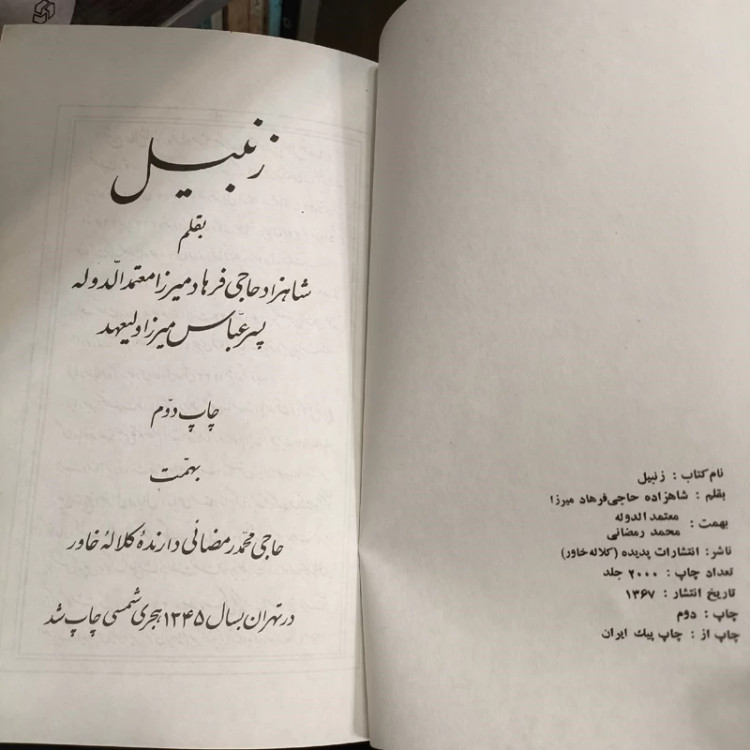 نام کتاب : زنبیل
بقلم : شاهزاده حاجی فرهاد میرزا
معتمدالدوله
بهمت : محمد رمضانی
ناشر: انتشارات پدیده (کلاله خاور)
تعداد چاپ : ۲۰۰۰ جلد
تاریخ انتشار : ۱۳۶۷
چاپ : دوم
چاپ از : چاپ پیک ایران
زنبیل
بقلم
شاهزاده حاجی فرهاد میرزا معتمد الّدوله
پسر عبّاس میرزا ولیعهد
چاپ دوّم
بهمّت
حاجی محمّد رمضانی دارندهٔ کلالهٔ خاور
در تهران بسال ۱۳۴۵ هجری شمسی چاپ شد